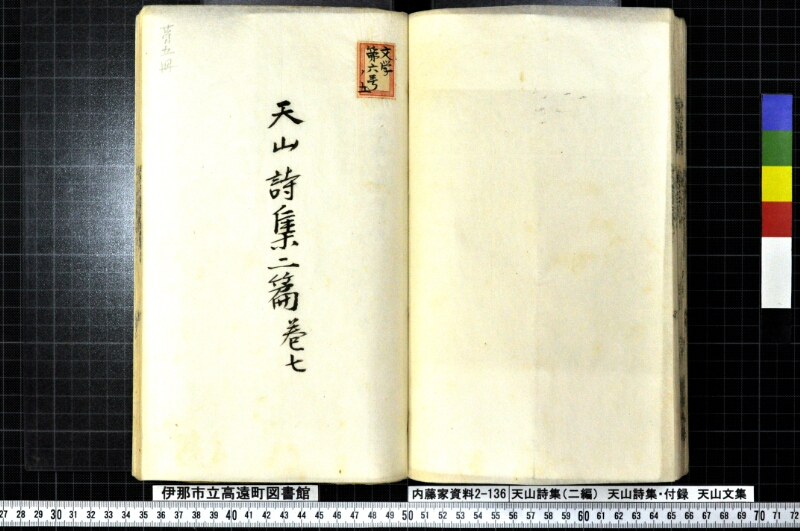 文学
第六号
ノ五
天山詩集二篇 巻七
第九冊
伊那市立高遠町図書館
内藤家資料2-136 天山詩集(二編) 天山詩集・付録 天山文集
27 28 29 30 31 32 33 34 35 36 37 38 39 40 41 42 43 44 45 46 47 48 49 50 51 52 53 54 55 56 57 58 59 60 61 62 63 64 65 66 67 68 69 70 71 72